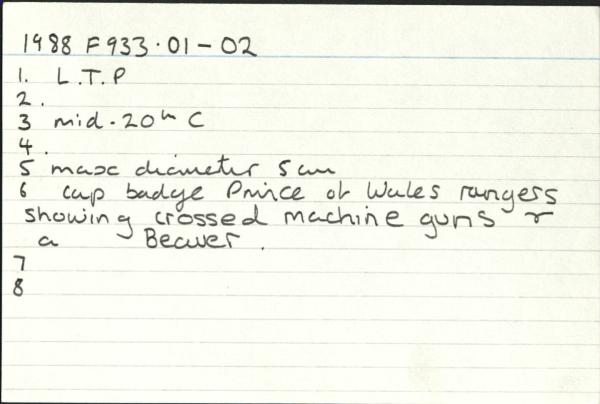 1988 F933.01-02
1. L.T.P
2.
3 mid-20th C
4.
5 max diameter 5cm
6 cap badge Prince of Wales rangers
showing crossed machine guns &
a Beaver.
7
8